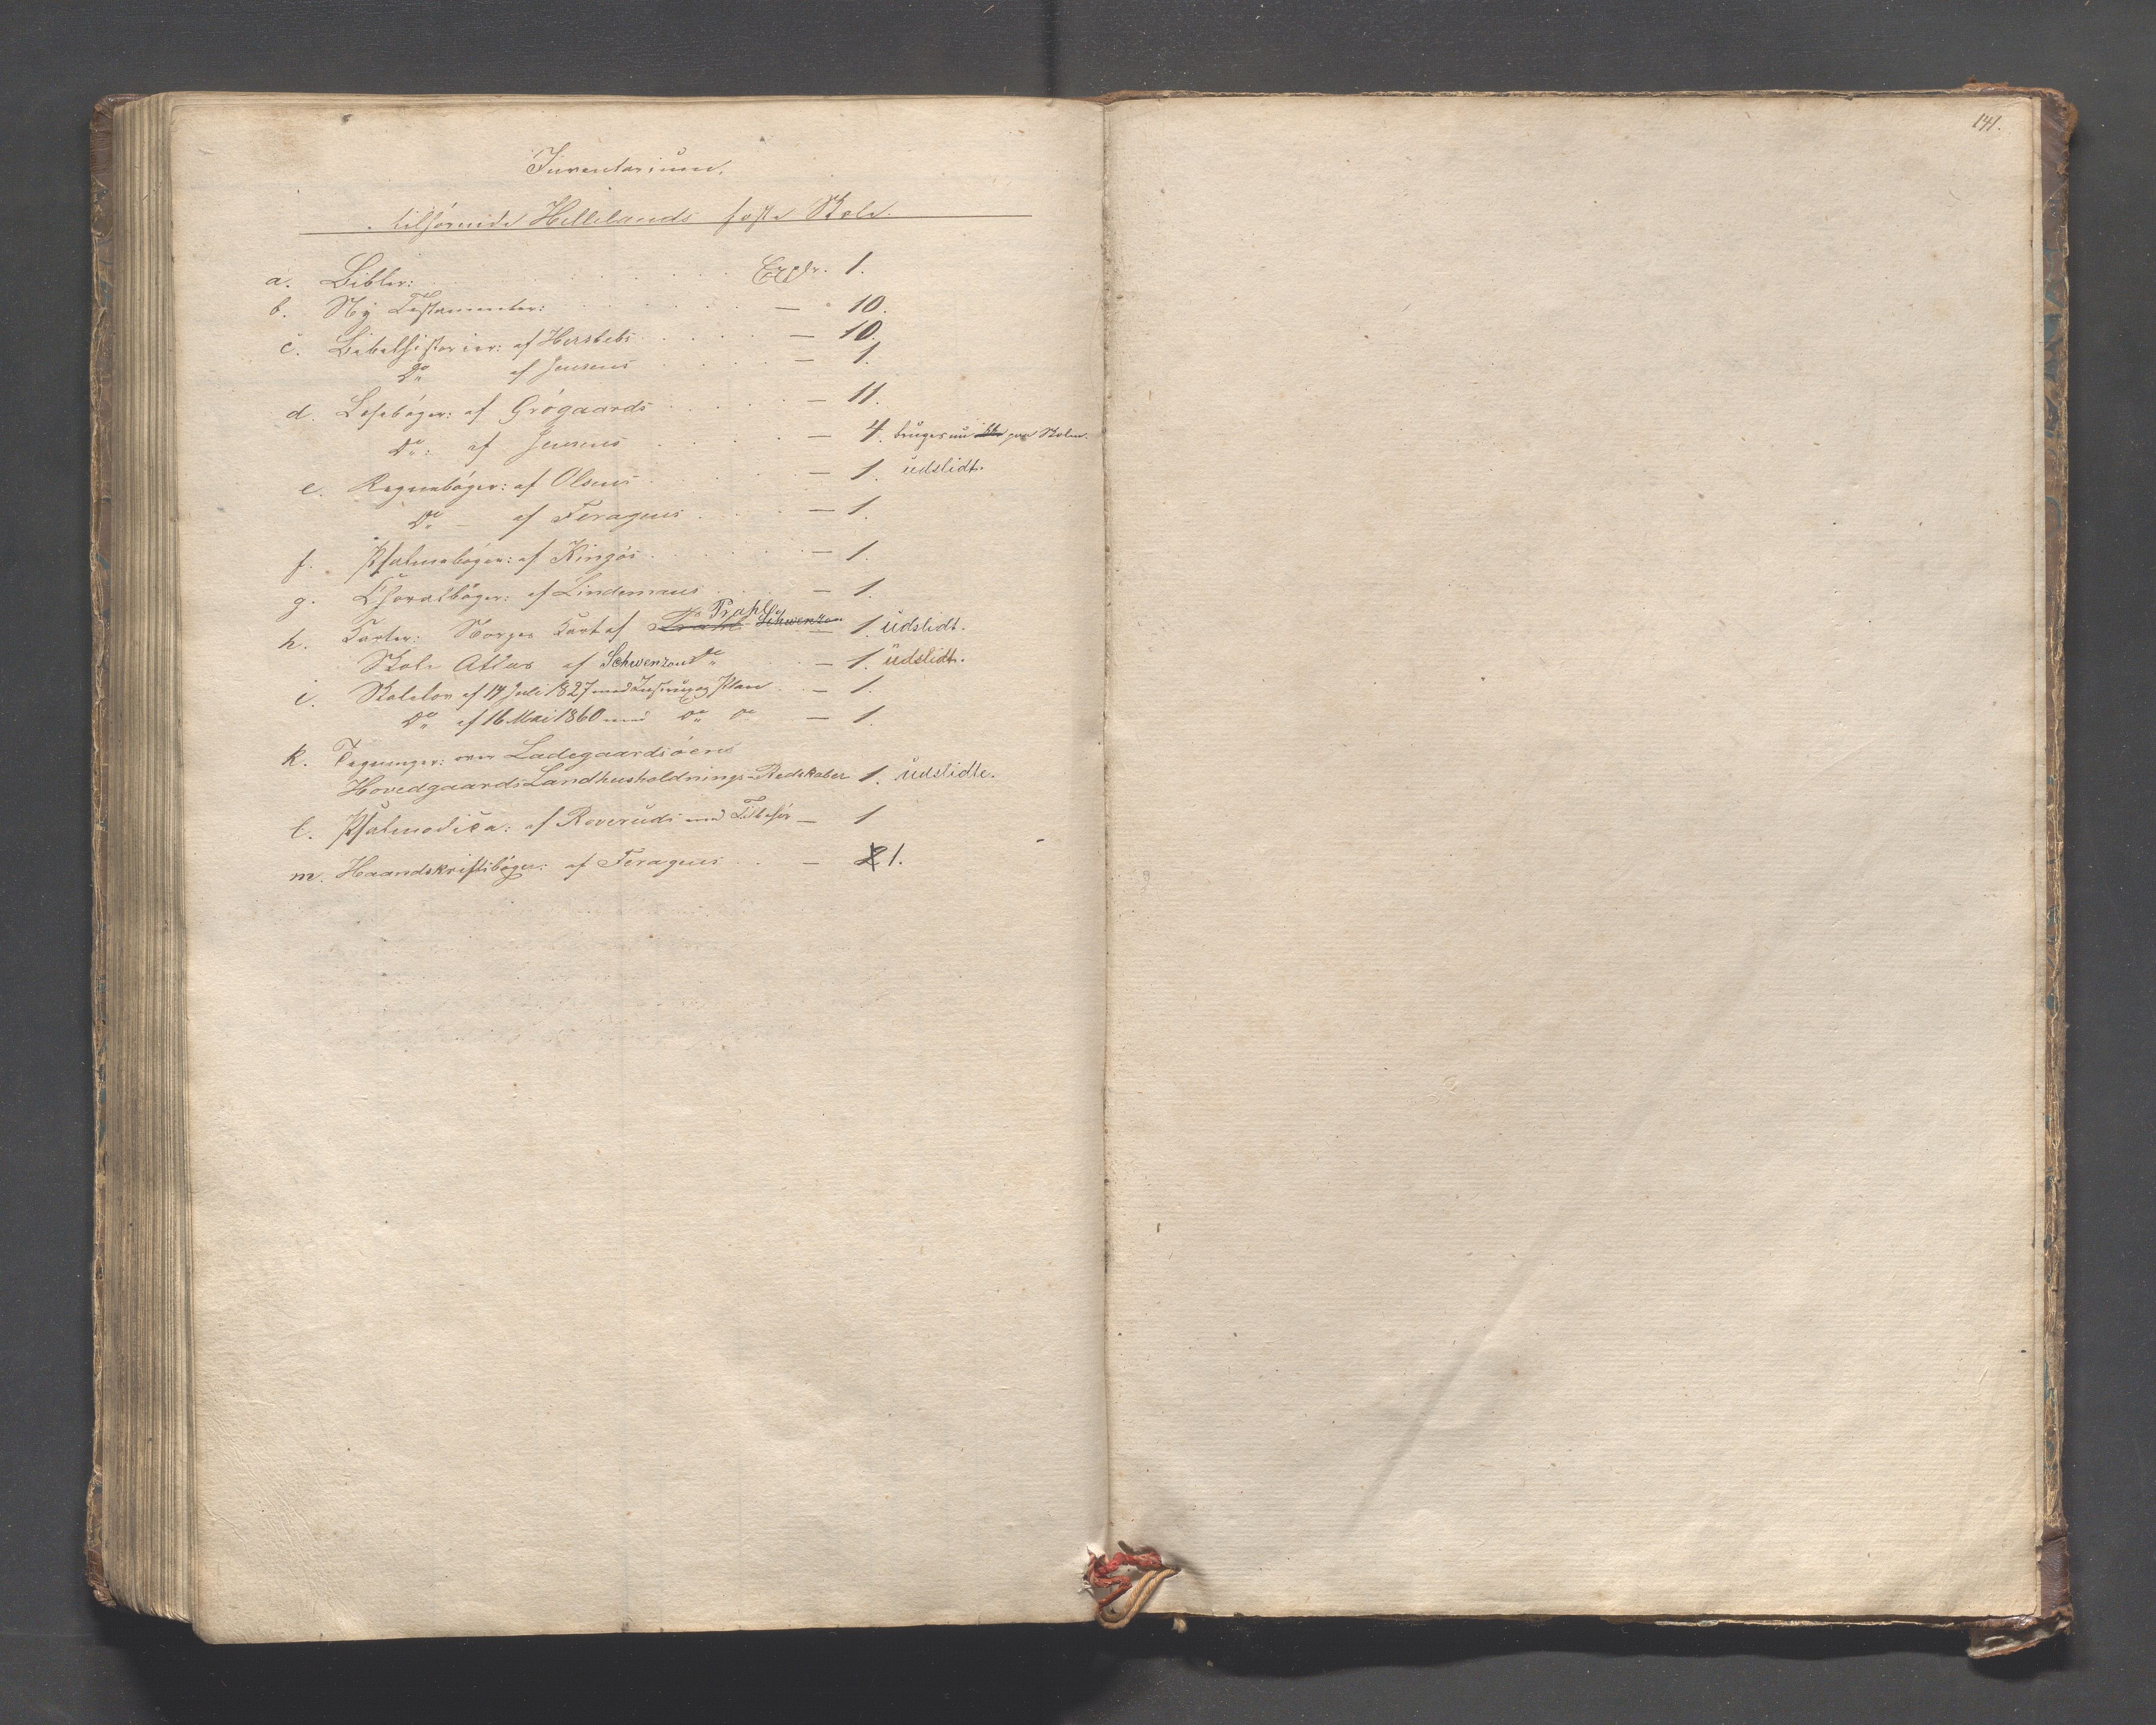 Inventarium,
tilhørende Hellelands faste Skole.
a. Bibler: Explr. 1.
b. Ny Testamenter: — 10.
c. Bibelhistorier: af Herslebs — 10.
Do af Jensens — 1.
d. Læsebøger: af Grögaards — 11.
Do: af Jensens — 4. bruges nu paa Skolen.
e. Regnebøger: af Olsens — 1. udslidt.
Do — af Feragens — 1.
f. Psalmebøger: af Kingos — 1.
g. Choralbøger: af Lindemans — 1.
Prahl
h. Karter: Norges Kart af Schwenzon — 1. udslidt.
Skole Atlas af Schwenzon Do — 1. udslidt.
i. Skolelov af 14 Juli 1827 med Instrux og Plan — 1.
Do af 16 Mai 1860 med Do Do — 1.
k. Tegninger: over Ladegaardsøens
Hovedgaards Landhusholdnings-Redskaber 1. udslidte.
l. Psalmodica: af Roveruds med Tilbehør — 1
m. Haandskriftsbøger: af Feragens — 2 1.
141.